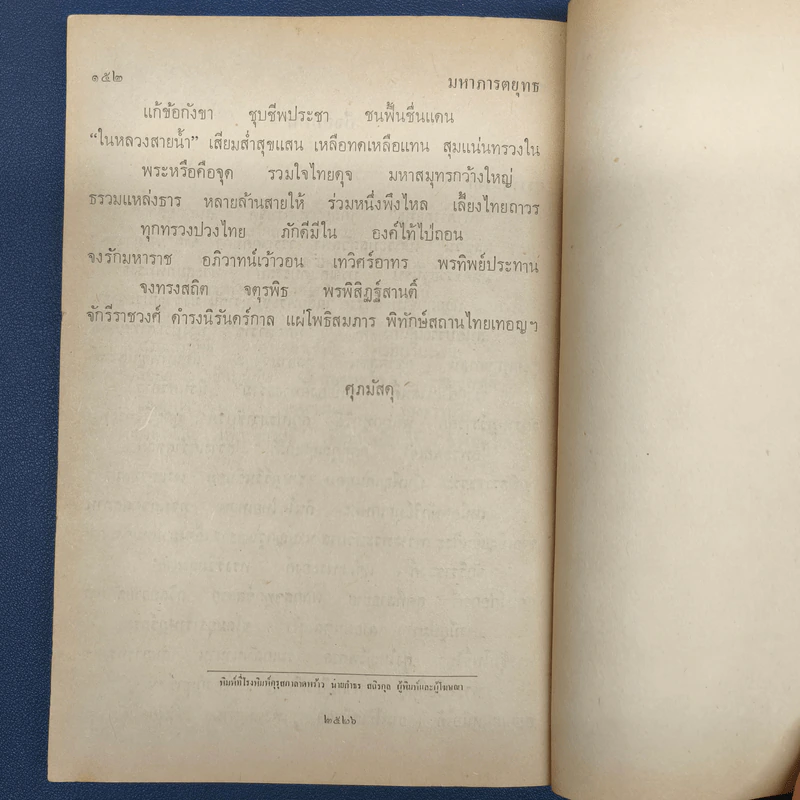 ๑๕๒ มหาภารตยุทธ
แก้ข้อกังขา ชุบชีพประชา ชนฟื้นชื่นแดน
“ในหลวงสายน้ำ” เสียมส่ำสุขแสน เหลือทดเหลือแทน สุมแน่นทรวงใน
พระหรือคือจุด รวมใจไทยดุจ มหาสมุทรกว้างใหญ่
ธรวมแหล่งธาร หลายล้านสายให้ ร่วมหนึ่งพึงไหล เลี้ยงไทยถาวร
ทุกทรวงปวงไทย ภักดีมีใน องค์ไท้ไป่ถอน
จงรักมหาราช อภิวาทน์เว้าวอน เทวิศร์อาทร พรทิพย์ประทาน
จงทรงสถิต จตุรพิธ พรพิสิฏฐ์สานติ์
จักรีราชวงศ์ ดำรงนิรันดร์กาล แผ่โพธิสมภาร พิทักษ์สถานไทยเทอญฯ
ศุภมัสดุ
พิมพ์ที่โรงพิมพ์คุรุสภาลาดพร้าว นายกำธร สถิรกุล ผู้พิมพ์และผู้โฆษณา
๒๕๒๖